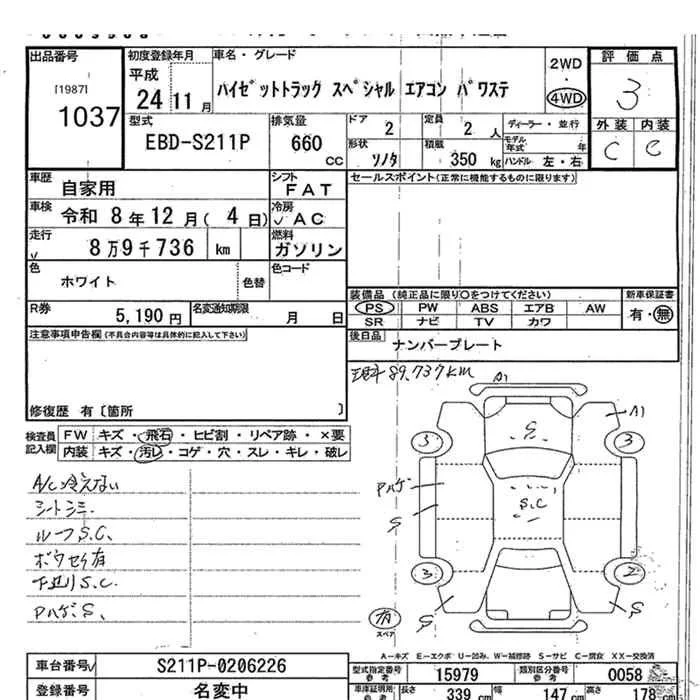 出品番号
[1987]
1037
初度登録年月
平成
24 11 月
車名・グレード
ハイゼットトラック スペシャル エアコン パワステ
2WD
・
4WD
評価点
3
外装 内装
C C
型式
EBD-S211P
排気量
660
cc
ドア
2
定員
2 人
ディーラー・並行
モデル年式 年
形状
ソノタ
積載
350 kg
ハンドル 左・右
車歴
自家用
シフト
FAT
セールスポイント(正常に機能するものに限ります)
車検
令和 8年 12月( 4日)
冷房
AC
走行
8万9千736 km
燃料
ガソリン
色
ホワイト
色替
色コード
R券
5,190 円
名変通知期限
月 日
装備品 (純正品に限り○をつけてください)
新車保証書
PS PW ABS エアB AW
有・無
SR ナビ TV カワ
注意事項申告欄(不具合内容等は具体的に記入して下さい)
後日品
ナンバープレート
修復歴 有〔箇所 〕
現斗 89,737km
A1
A1
検査員記入欄
FW キズ・飛石・ヒビ割・リペア跡・×要
内装 キズ・汚レ・コゲ・穴・スレ・キレ・破レ
A/C冷えない
シートシミ
ルーフS.C.
ボウセイ有
下廻りS.C.
Pハゲ、S、
3
3
S
Pハゲ
S
S.C
3
2
S
S
有
スペア
A-キズ E-エクボ U-凹み、W-補修跡 S-サビ C-腐食 XX-交換済
車台番号
S211P-0206226
型式指定番号
参考
15979
類別区分番号
参考
0058
登録番号
名変中
車庫証明用
参考
長さ
339 cm
幅
147 cm
高さ
178 cm